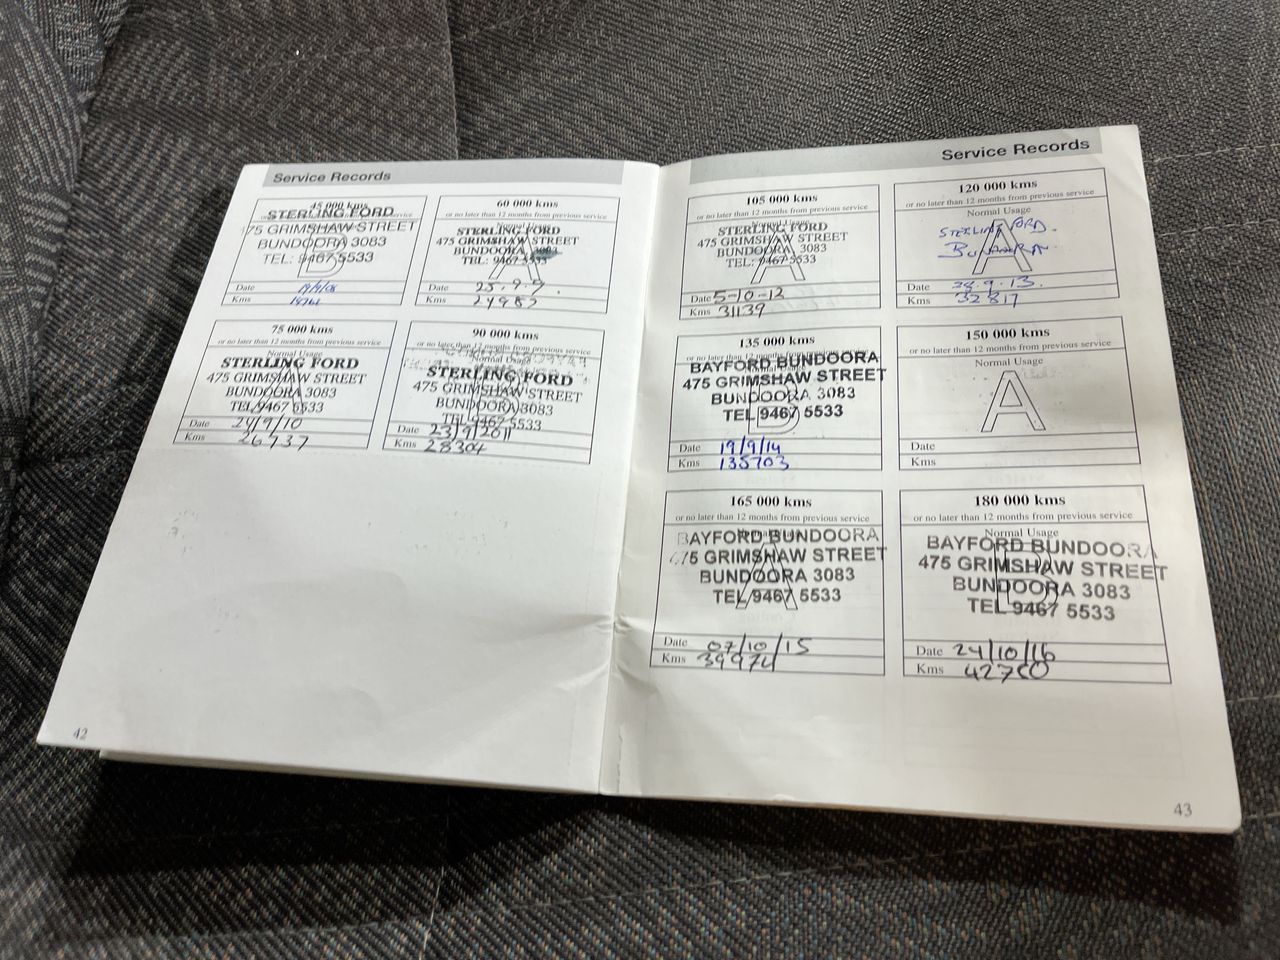 Service Records
45 000 kms
STERLING FORD
475 GRIMSHAW STREET
BUNDOORA 3083
TEL: 9467 5533
B
Date 19/9/08
Kms
60 000 kms
or no later than 12 months from previous service
STERLING FORD
475 GRIMSHAW STREET
BUNDOORA 3083
TEL: 9467 5533
A
Date 25.9.9.
Kms 24983
75 000 kms
or no later than 12 months from previous service
Normal Usage
STERLING FORD
475 GRIMSHAW STREET
BUNDOORA 3083
TEL 9467 5533
A
Date 24/9/10
Kms 26737
90 000 kms
or no later than 12 months from previous service
Normal Usage
STERLING FORD
475 GRIMSHAW STREET
BUNDOORA 3083
TEL 9467 5533
B
Date 23/9/2011
Kms 28304
42
Service Records
105 000 kms
or no later than 12 months from previous service
Normal Usage
STERLING FORD
475 GRIMSHAW STREET
BUNDOORA 3083
TEL: 9467 5533
A
Date 5-10-12
Kms 31139
120 000 kms
or no later than 12 months from previous service
Normal Usage
STERLING FORD.
BUNDOORA
A
Date 28.9.13.
Kms 32817
135 000 kms
or no later than 12 months from previous service
Normal Usage
BAYFORD BUNDOORA
475 GRIMSHAW STREET
BUNDOORA 3083
TEL 9467 5533
B
Date 19/9/14
Kms 135703
150 000 kms
or no later than 12 months from previous service
Normal Usage
A
Date
Kms
165 000 kms
or no later than 12 months from previous service
Normal Usage
BAYFORD BUNDOORA
475 GRIMSHAW STREET
BUNDOORA 3083
TEL 9467 5533
A
Date 07/10/15
Kms 39974
180 000 kms
or no later than 12 months from previous service
Normal Usage
BAYFORD BUNDOORA
475 GRIMSHAW STREET
BUNDOORA 3083
TEL 9467 5533
B
Date 24/10/16
Kms 42760
43